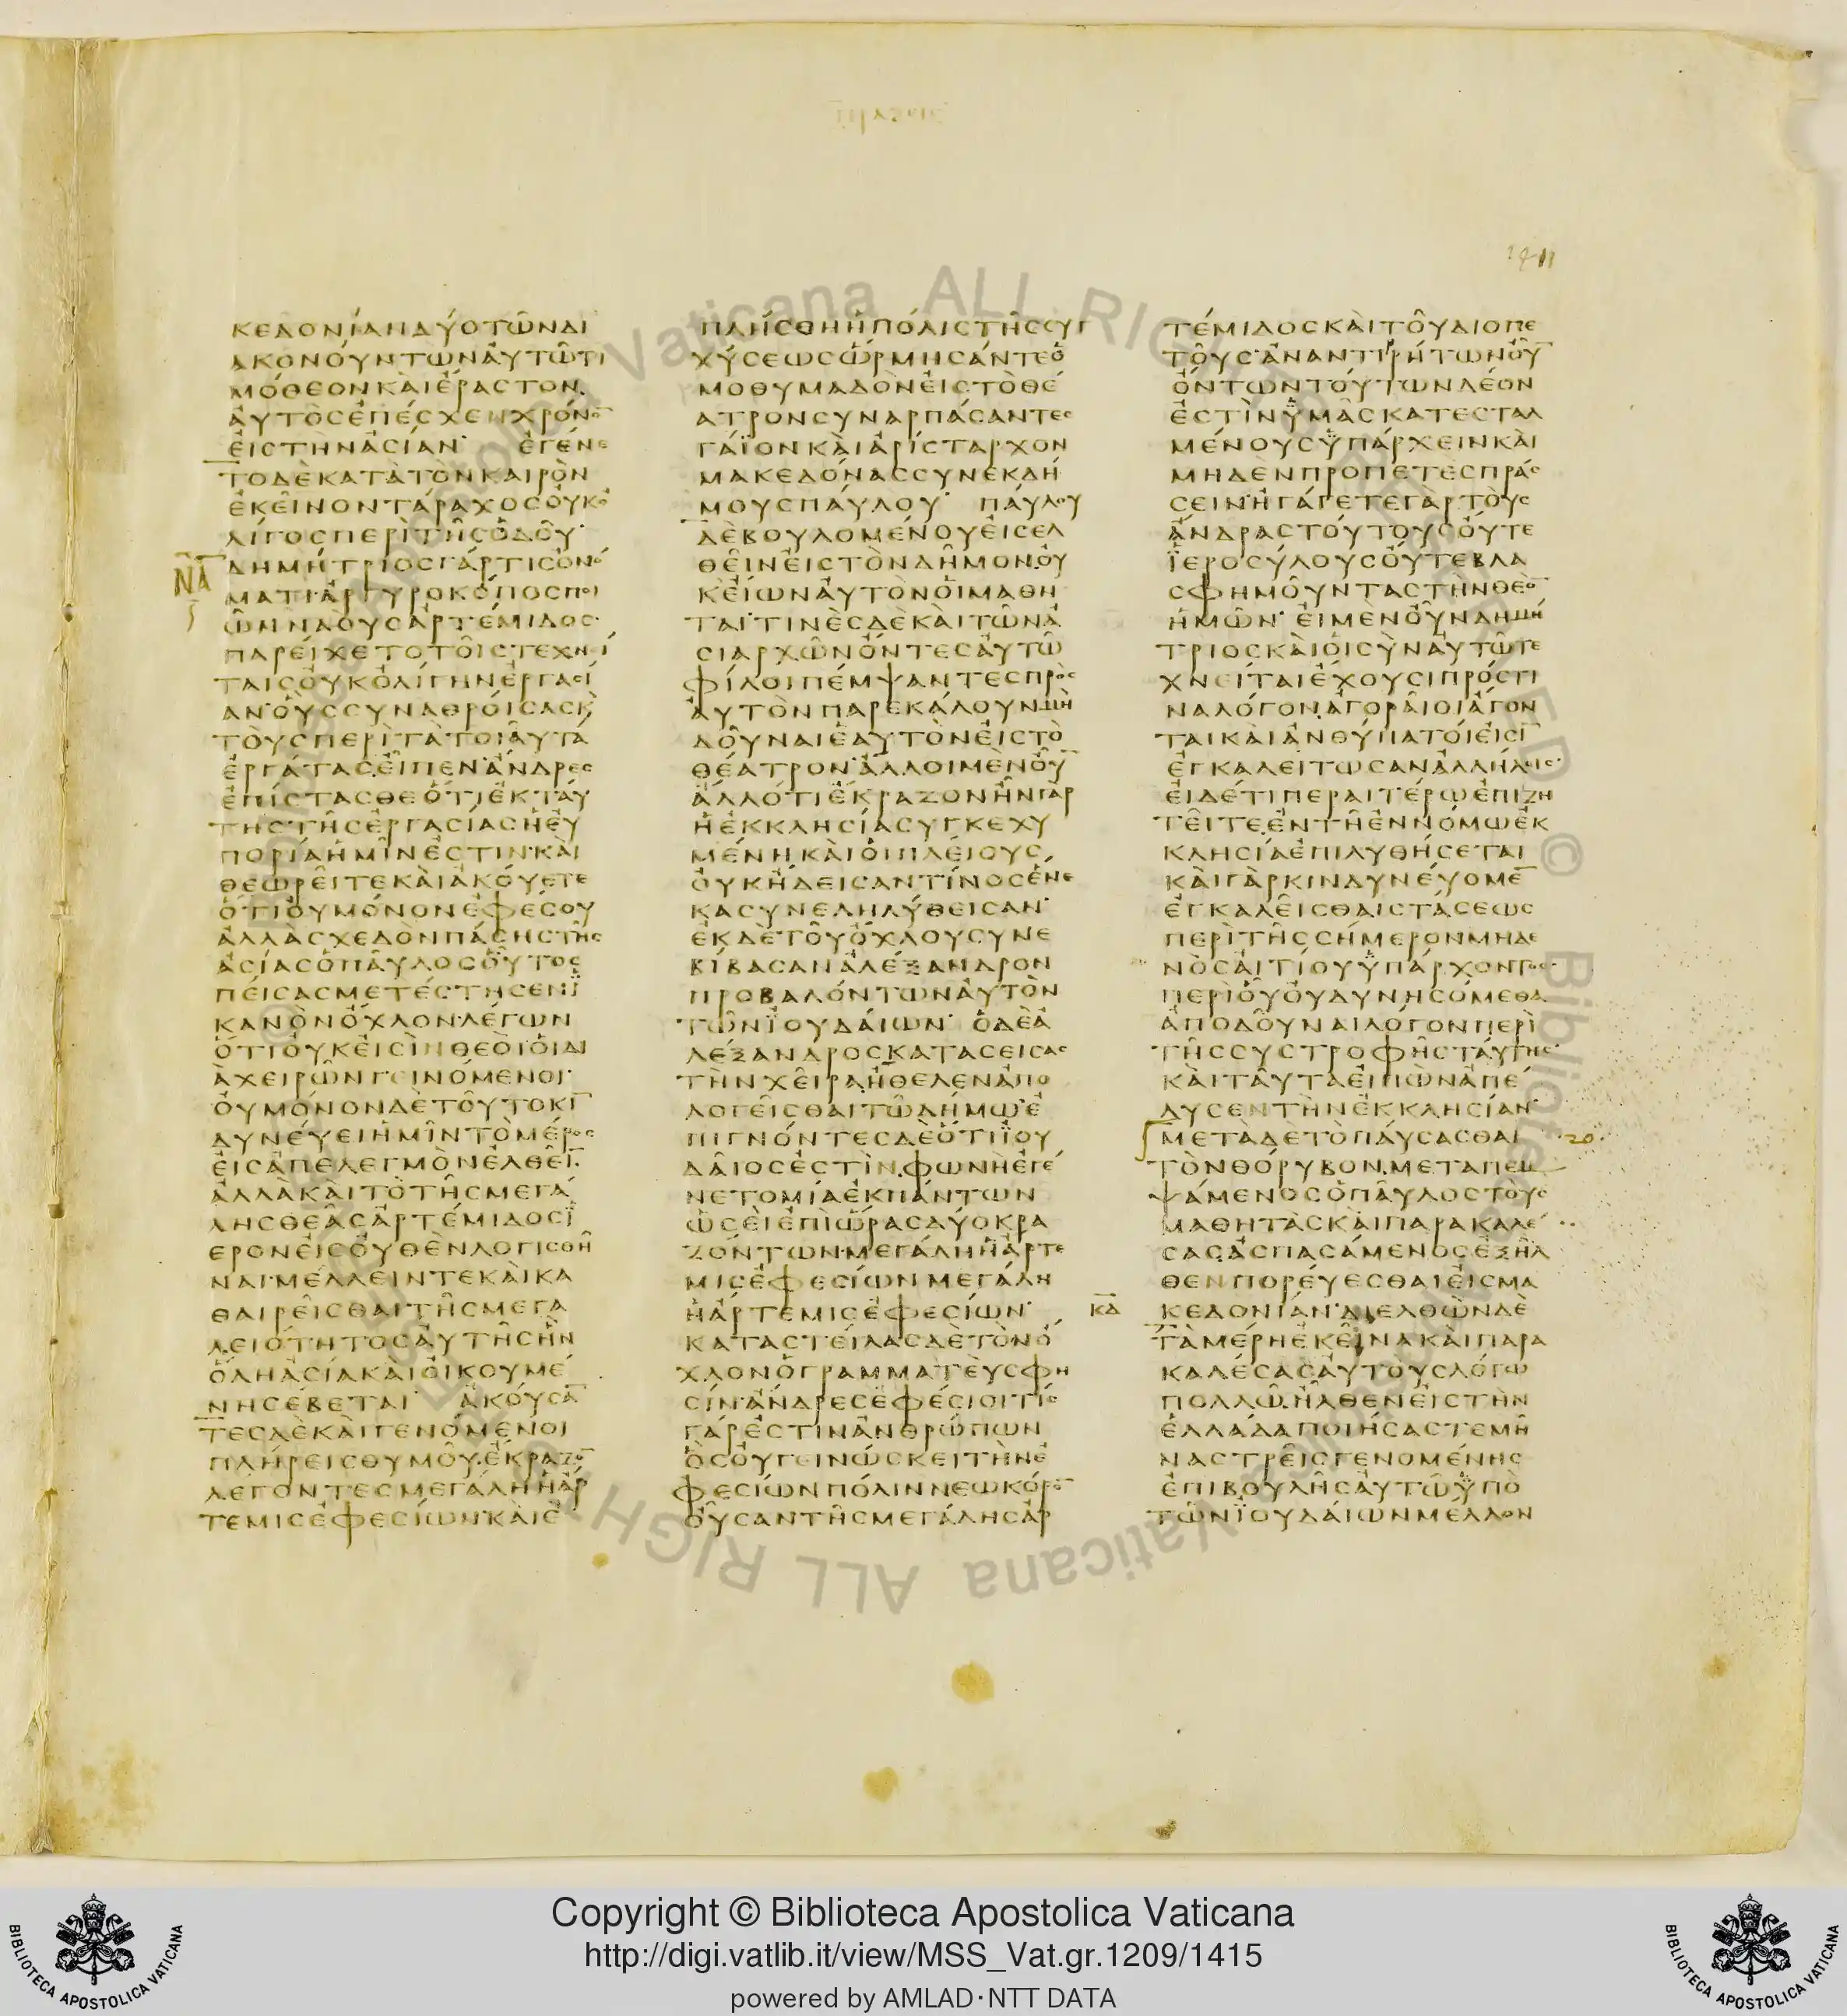 πραξεις
1411
ΚΕΔΟΝΊΑΝΔΎΟΤῶΝΔΙ
ΑΚΟΝΟΎΝΤΩΝἈΥΤῶΤΙ
ΜΌΘΕΟΝΚΑῚἜΡΑΣΤΟΝ.
ἈΥΤῸΣἘΠΈΣΧΕΝΧΡΌΝΟ̅
ἘΙΣΤΗΝἈΣΊΑΝ· ἘΓΈΝΕ
ΤΟΔῈΚΑΤᾺΤῸΝΚΑΙΡῸΝ
ἘΚΕῖΝΟΝΤΆΡΑΧΟΣὈΥΚΟ
ΛΊΓΟΣΠΕΡῚΤῆΣὉΔΟῦ·
ΔΗΜΉΤΡΙΟΣΓΆΡΤΙΣὈΝΌ
ΜΑΤΙ·ἈΡΓΥΡΟΚΌΠΟΣΠΟΙ
ῶΝΝΑΟΥΣἈΡΤΈΜΙΔΟΣ·
ΠΑΡΕΊΧΕΤΟΤΟῖΣΤΕΧΝΊ
ΤΑΙΣὈΥΚὈΛΊΓΗΝἘΡΓΑΣΊ
ΑΝ·ὋΥΣΣΥΝΑΘΡΟΊΣΑΣΚ
ΤΟῪΣΠΕΡῚΤᾺΤΟΙἆΥΤΑ
ἘΡΓΆΤΑΣ.ἘῖΠΕΝ·ἌΝΔΡΕΣ
ἘΠΊΣΤΑΣΘΕὍΤΙἘΚΤΆΥ
ΤΗΣΤῆΣἘΡΓΑΣΊΑΣἩἘΥ
ΠΟΡΊΑἩΜῖΝἘΣΤΙΝ·ΚΑΙ
ΘΕΩΡΕῖΤΕΚΑῚἈΚΟΎΕΤΕ
ὍΤΙΟΥΜΌΝΟΝἘΦΈΣΟΥ
ἈΛΛᾺΣΧΕΔῸΝΠΆΣΗΣΤῆΣ
ἈΣΊΑΣὉΠΑῦΛΟΣΟὗΤΟΣ
ΠΕΊΣΑΣΜΕΤΈΣΤΗΣΕΝΪ
ΚΑΝῸΝὌΧΛΟΝ·ΛΈΓΩΝ
ὍΤΙΟΥΚἘΙΣῚΝΘΕΟῚὉΙΔΙ
ᾺΧΕΙΡῶΝΓΕΙΝΌΜΕΝΟΙ·
ὈΥΜΌΝΟΝΔῈΤΟῦΤΟΚΙ̅
ΔΥΝΈΥΕΙἩΜῖΝΤῸΜΈΡΟΣ
ἘΙΣἈΠΕΛΕΓΜῸΝἘΛΘΕῖ̅.
ἈΛΛᾺΚΑῚΤῸΤῆΣΜΕΓΆ
ΛΗΣΘΕᾶΣἈΡΤΈΜΙΔΟΣΪ
ΕΡΟΝἘΙΣΟΥΘῈΝΛΟΓΙΣΘΗ
ΝΑΙ·ΜΈΛΛΕΙΝΤΕΚΑῚΚΑ
ΘΑΙΡΕῖΣΘΑΙΤῆΣΜΕΓΑ
ΛΕΙΌΤΗΤΟΣἈΥΤῆΣἫΝ
ὍΛΗἈΣΊΑΚΑῚὉΙΚΟΥΜΈ
ΝΗΣΈΒΕΤΑΙ· ἈΚΟΎΣΑ̅
ΤΕΣΔῈΚΑῚΓΕΝΌΜΕΝΟΙ
ΠΛΉΡΕΙΣΘΥΜΟῦ.ἜΚΡΑΖΟ̅
ΛΈΓΟΝΤΕΣΜΕΓΆΛΗἩἌΡ
ΤΕΜΙΣἘΦΕΣΊΩΝ·ΚΑῚἘ
ΝΑ̅
ΠΛΉΣΘΗἩΠΌΛΙΣΤῆΣΣΥΓ
ΧΎΣΕΩΣὭΡΜΗΣΆΝΤΕὉ
ΜΟΘΥΜΑΔῸΝἘΙΣΤῸΘΈ
ΑΤΡΟΝΣΥΝΑΡΠΆΣΑΝΤΕΣ
ΓΆΪΟΝΚΑῚἈΡΊΣΤΑΡΧΟΝ
ΜΑΚΕΔΌΝΑΣΣΥΝΕΚΔΉ
ΜΟΥΣΠΑΎΛΟΥ· ΠΑΎΛΟΥ
ΔῈΒΟΥΛΟΜΈΝΟΥΕΙΣΕΛ
ΘΕῖΝἘΙΣΤῸΝΔῆΜΟΝ.ΟΥ
ΚΕΊΩΝἈΥΤῸΝὉΙΜΑΘΗ
ΤΑΊ·ΤΙΝῈΣΔῈΚΑῚΤῶΝἈ
ΣΙΑΡΧῶΝὌΝΤΕΣἈΥΤῶ
ΦΊΛΟΙΠΈΜΨΑΝΤΕΣΠΡῸΣ
ἈΥΤῸΝΠΑΡΕΚΆΛΟΥΝΜῊ
ΔΟῦΝΑΙἙΑΥΤῸΝἘΙΣΤῸ
ΘΈΑΤΡΟΝ·ἌΛΛΟΙΜῈΝΟῦ̅
ἌΛΛΌΤΙἜΚΡΑΖΟΝἮΝΓᾺΡ
ἩἘΚΚΛΗΣΊΑΣΥΓΚΕΧΥ
ΜΈΝΗ.ΚΑῚὉΙΠΛΕΊΟΥΣ
ὈΥΚἬΔΕΙΣΑΝΤΊΝΟΣἝΝΕ
ΚΑΣΥΝΕΛΗΛΎΘΕΙΣΑΝ·
ἘΚΔῈΤΟῦὌΧΛΟΥΣΥΝΕ
ΒΊΒΑΣΑΝἈΛΈΞΑΝΔΡΟΝ
ΠΡΟΒΑΛΌΝΤΩΝἈΥΤῸΝ
ΤῶΝΪΟΥΔΑΊΩΝ· ὉΔῈἈ
ΛΈΞΑΝΔΡΟΣΚΑΤΑΣΕΙΣΑΣ
ΤῊΝΧΕῖΡΑ.ἬΘΕΛΕΝἈΠΟ
ΛΟΓΕῖΣΘΑΙΤῶΔΉΜΩ·Ἐ
ΠΙΓΝΌΝΤΕΣΔῈὍΤΙΪΟΥ
ΔΑῖΟΣἘΣΤῚΝ.ΦΩΝῊἘΓΈ
ΝΕΤΟΜΊΑἘΚΠΆΝΤΩΝ
ὩΣΕῚἘΠῚὭΡΑΣΔΎΟΚΡΑ
ΖΌΝΤΩΝ·ΜΕΓΆΛΗἩἌΡΤΕ
ΜΙΣἘΦΕΣΊΩΝΜΕΓΆΛΗ
ἩἌΡΤΕΜΙΣἘΦΕΣΊΩΝ·
ΚΑΤΑΣΤΕΊΛΑΣΔῈΤῸΝὌ
ΧΛΟΝὉΓΡΑΜΜΑΤΕῪΣΦΗ
ΣΊΝ·ἌΝΔΡΕΣἘΦΈΣΙΟΙ·ΤΊΣ
ΓΆΡἘΣΤΙΝἈΝΘΡΏΠΩΝ
ὋΣΟΥΓΕΙΝΏΣΚΕΙΤῊΝἘ
ΦΕΣΊΩΝΠΌΛΙΝΝΕΩΚΌΡΟ̅
ΟὖΣΑΝΤῆΣΜΕΓΆΛΗΣἈΡ
ΤΈΜΙΔΟΣΚΑῚΤΟῦΔΙΟΠΕ
ΤΟῦΣ·ἈΝΑΝΤΙΡΉΤΩΝΟΥ̅
ὌΝΤΩΝΤΟΎΤΩΝΔΈΟΝ
ἘΣΤῚΝΫΜᾶΣΚΑΤΕΣΤΑΛ
ΜΈΝΟΥΣΫΠΆΡΧΕΙΝΚΑῚ
ΜΗΔῈΝΠΡΟΠΕΤῈΣΠΡΆΣ
ΣΕΙΝ·ἨΓΆΓΕΤΕΓᾺΡΤΟῪΣ
ἌΝΔΡΑΣΤΟΎΤΟΥΣΟΎΤΕ
ΪΕΡΟΣΎΛΟΥΣΟΎΤΕΒΛΑ
ΣΦΗΜΟῦΝΤΑΣΤῊΝΘΕῸ̅
ἩΜῶΝ· ἘΙΜῈΝΟΥΝΔΗΜΉ
ΤΡΙΟΣΚΑῚὉΙΣῪΝἈΥΤῶΤΕ
ΧΝΕΊΤΑΙἜΧΟΥΣΙΠΡΌΣΤΙ
ΝΑΛΌΓΟΝ.ἈΓΟΡΑῖΟΙἌΓΟΝ
ΤΑΙΚΑῚἈΝΘΎΠΑΤΟΊἘΙΣΙ̅
ἘΓΚΑΛΕΊΤΩΣΑΝἈΛΛΉΛΟΙΣ·
ἘΙΔΈΤΙΠΕΡΑΙΤΈΡΩἘΠΙΖΗ
ΤΕῖΤΕ.ἘΝΤῆἘΝΝΌΜΩἘΚ
ΚΛΗΣΊΑἘΠΙΛΥΘΉΣΕΤΑΙ
ΚΑῚΓᾺΡΚΙΝΔΥΝΕΎΟΜΕ̅
ἘΓΚΑΛΕῖΣΘΑΙΣΤΆΣΕΩΣ
ΠΕΡῚΤῆΣΣΉΜΕΡΟΝΜΗΔΕ
ΝῸΣἈΙΤΊΟΥΫΠΆΡΧΟΝΤΟΣ·
ΠΕΡῚΟὗΟΥΔΥΝΗΣΌΜΕΘΑ
ἈΠΟΔΟῦΝΑΙΛΌΓΟΝΠΕΡῚ
ΤῆΣΣΥΣΤΡΟΦῆΣΤΑΎΤΗΣ·
ΚΑῚΤΑῦΤΑἘΙΠῺΝἈΠΈ
ΛΥΣΕΝΤῊΝἘΚΚΛΗΣΊΑΝ·
ΜΕΤᾺΔῈΤῸΠΑΎΣΑΣΘΑΙ
20.
ΤῸΝΘΌΡΥΒΟΝ.ΜΕΤΑΠΕΜ
ΨΆΜΕΝΟΣὉΠΑῦΛΟΣΤΟῪΣ
ΜΑΘΗΤᾺΣΚΑῚΠΑΡΑΚΑΛΈ
ΣΑΣ.ἈΣΠΑΣΆΜΕΝΟΣἘΞῆΛ
ΘΕΝΠΟΡΕΎΕΣΘΑΙἘΙΣΜΑ
ΚΑ̅
ΚΕΔΟΝΊΑΝ·ΔΙΕΛΘῺΝΔῈ
ΤᾺΜΈΡΗἘΚΕῖΝΑΚΑῚΠΑΡΑ
ΚΑΛΈΣΑΣἈΥΤΟῪΣΛΌΓΩ
ΠΟΛΛῶ.ἮΛΘΕΝἘΙΣΤῊΝ
ἙΛΛΆΔΑΠΟΙΉΣΑΣΤΕΜῆ
ΝΑΣΤΡΕῖΣΓΕΝΟΜΈΝΗΣ
ἘΠΙΒΟΥΛῆΣἈΥΤῶΫΠῸ
ΤῶΝΪΟΥΔΑΊΩΝΜΈΛΛΟΝ
Copyright © Biblioteca Apostolica Vaticana
http://digi.vatlib.it/view/MSS_Vat.gr.1209/1415
powered by AMLAD·NTT DATA
BIBLIOTECA APOSTOLICA VATICANA
BIBLIOTECA APOSTOLICA VATICANA